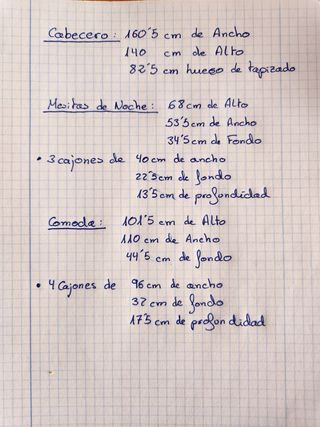 Cabecero: 160'5 cm de Ancho
140 cm de Alto
82'5 cm hueco de tapizado
Mesitas de Noche: 68 cm de Alto
53'5 cm de Ancho
34'5 cm de Fondo
• 3 cajones de 40 cm de ancho
22'5 cm de fondo
13'5 cm de profundidad
Comoda: 101'5 cm de Alto
110 cm de Ancho
44'5 cm de fondo
• 4 Cajones de 96 cm de ancho
32 cm de fondo
17'5 cm de profundidad